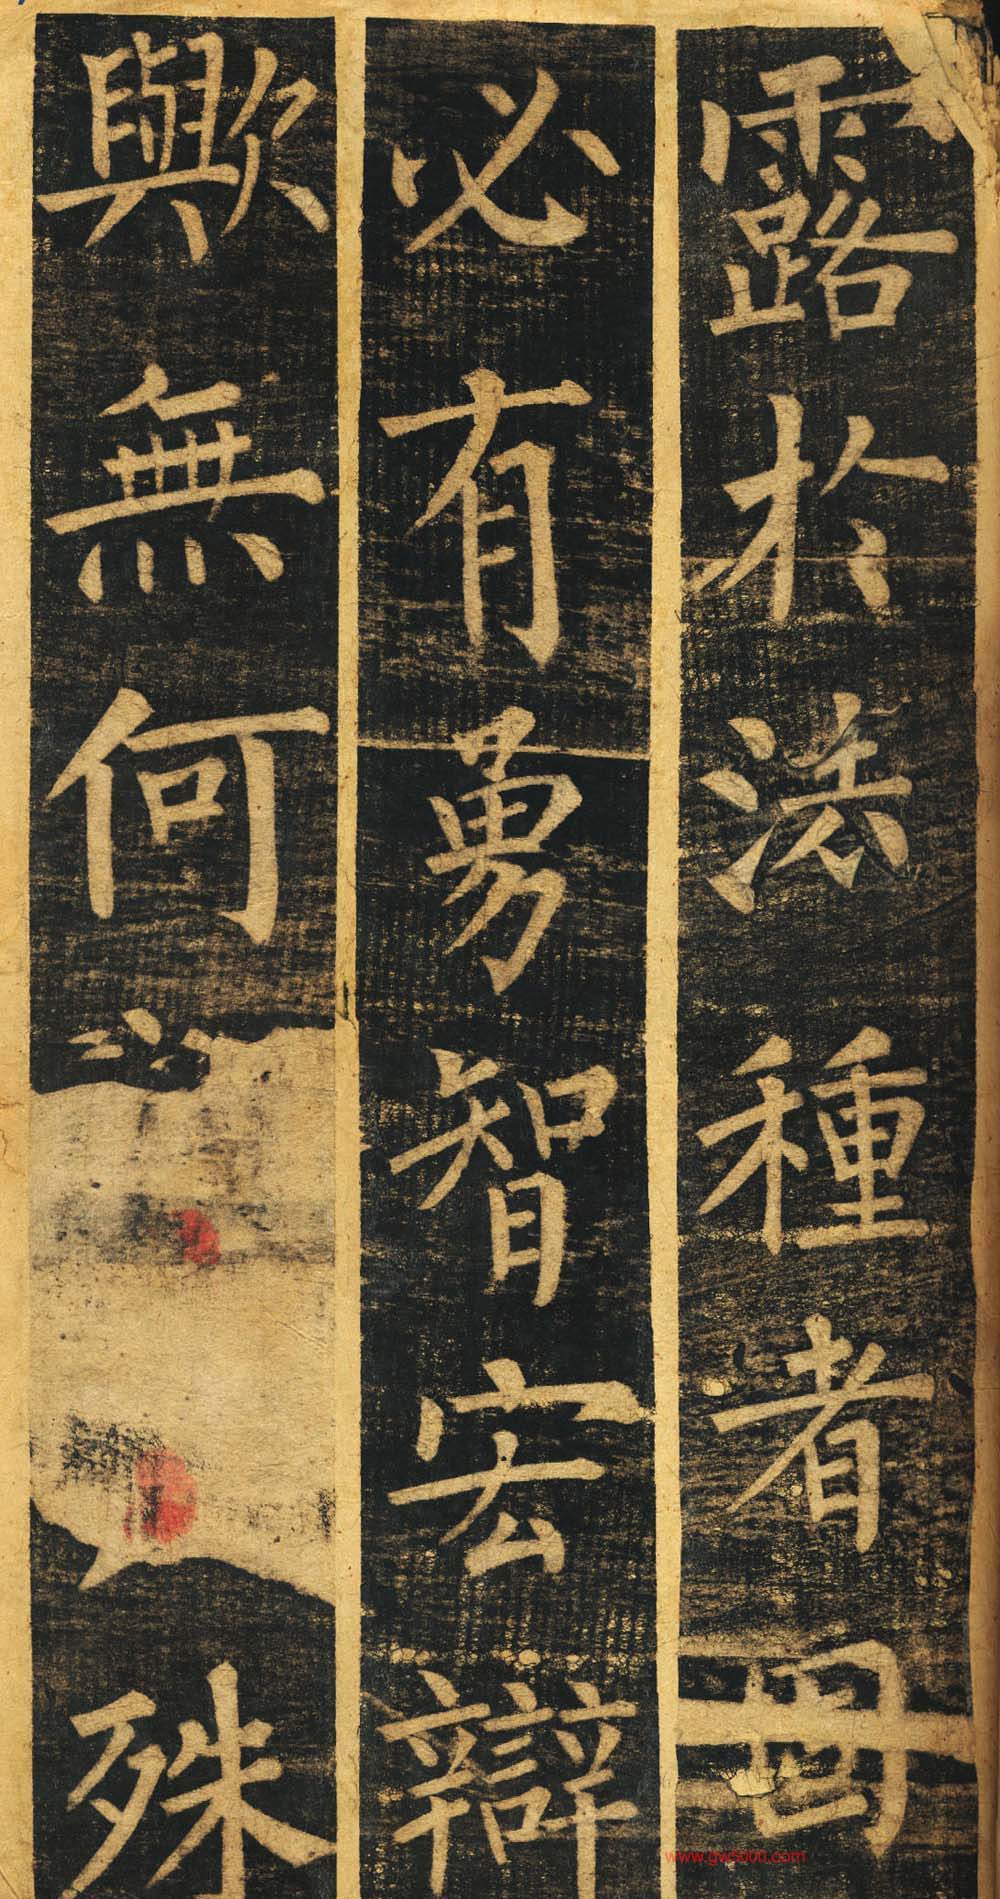 露於法種者固
必有勇智宏辯
歟無何
殊
www.gw5000.com